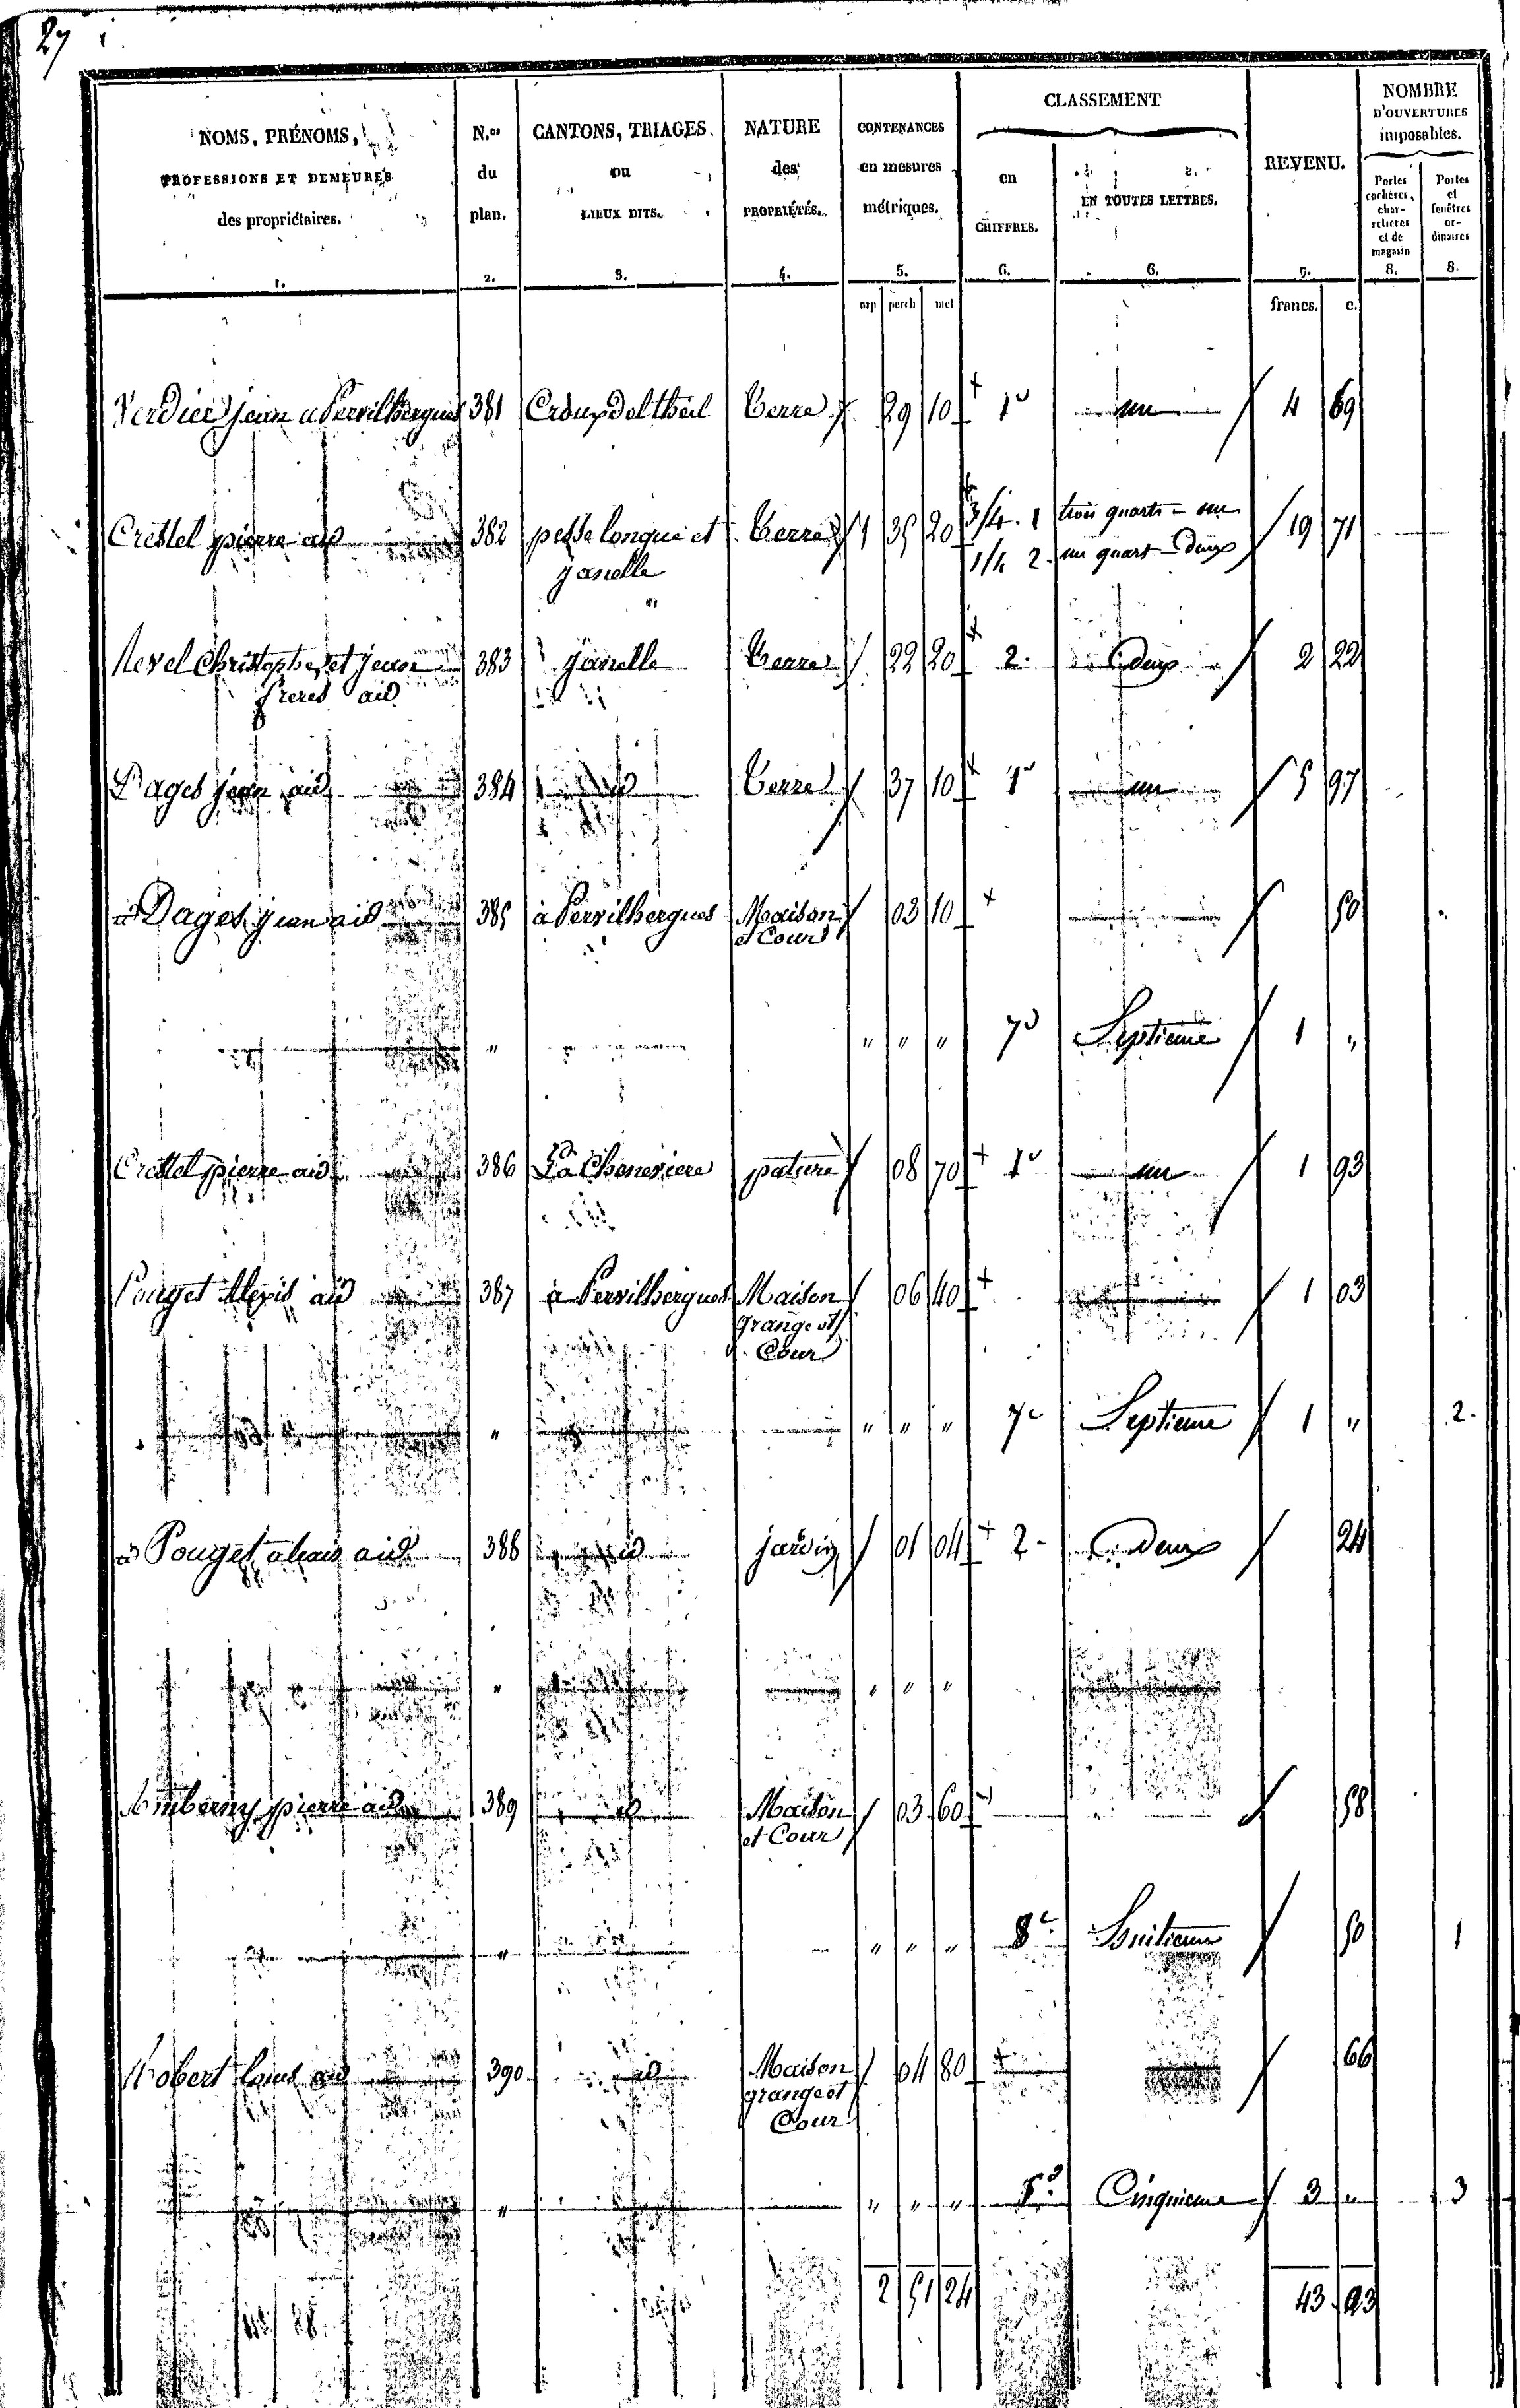 27
NOMS, PRÉNOMS, PROFESSIONS ET DEMEURES des propriétaires. 1.
N.os du plan. 2.
CANTONS, TRIAGES OU LIEUX DITS. 3.
NATURE des PROPRIÉTÉS. 4.
CONTENANCES en mesures métriques. 5.
CLASSEMENT
en CHIFFRES. 6.
EN TOUTES LETTRES. 6.
REVENU. 7.
NOMBRE D'OUVERTURES imposables.
Portes cochères, charretières et de magasin 8.
Portes et fenêtres ordinaires 8.
arp perch met francs. c.
Verdier jean a Pervilhergues 381 Croux Deltheil Terre 29 10 1e un 4 69
Cristel pierre aid 382 pesse longue et Terre 1 35 20 3/4. 1 trois quarts - un 19 71
janelle 1/4 2. un quart - Deux
Revel Christophe et jean 383 janelle Terre 22 20 2. Deux 2 22
freres aid
Pages jean aid 384 id Terre 37 10 1e un 5 97
id Pages jean aid 385 à Pervilhergues Maison 03 10 50
et Cour
" " " " 7e Septieme 1 "
Cristel pierre aid 386 La Cheneviere pature 08 70 1e un 1 93
Pouget Alexis aid 387 à Pervilhergues Maison 06 40 1 03
grange et
Cour
" " " " 7e Septieme 1 " 2.
id Pouget alexis aid 388 id jardin 01 04 2 - Deux 24
" " " "
pierre aid 389 id Maison 03 60 58
et Cour
" " " " 8e huitieme 50 1
Robert louis aid 390 id Maison 04 80 66
grange et
Cour
" " " " 5e Cinquieme 3 " 3
2 51 24 43 03